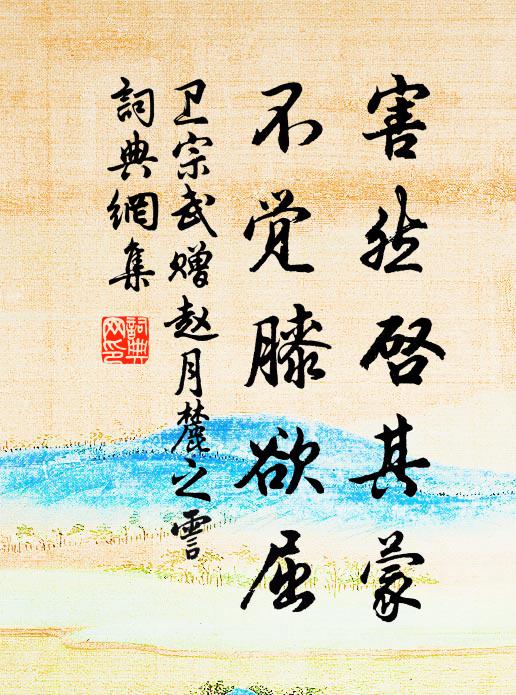 害然启其蒙
不觉膝欲屈
卫宗武赠赵月麓之霅
詞典網集
詞典网印